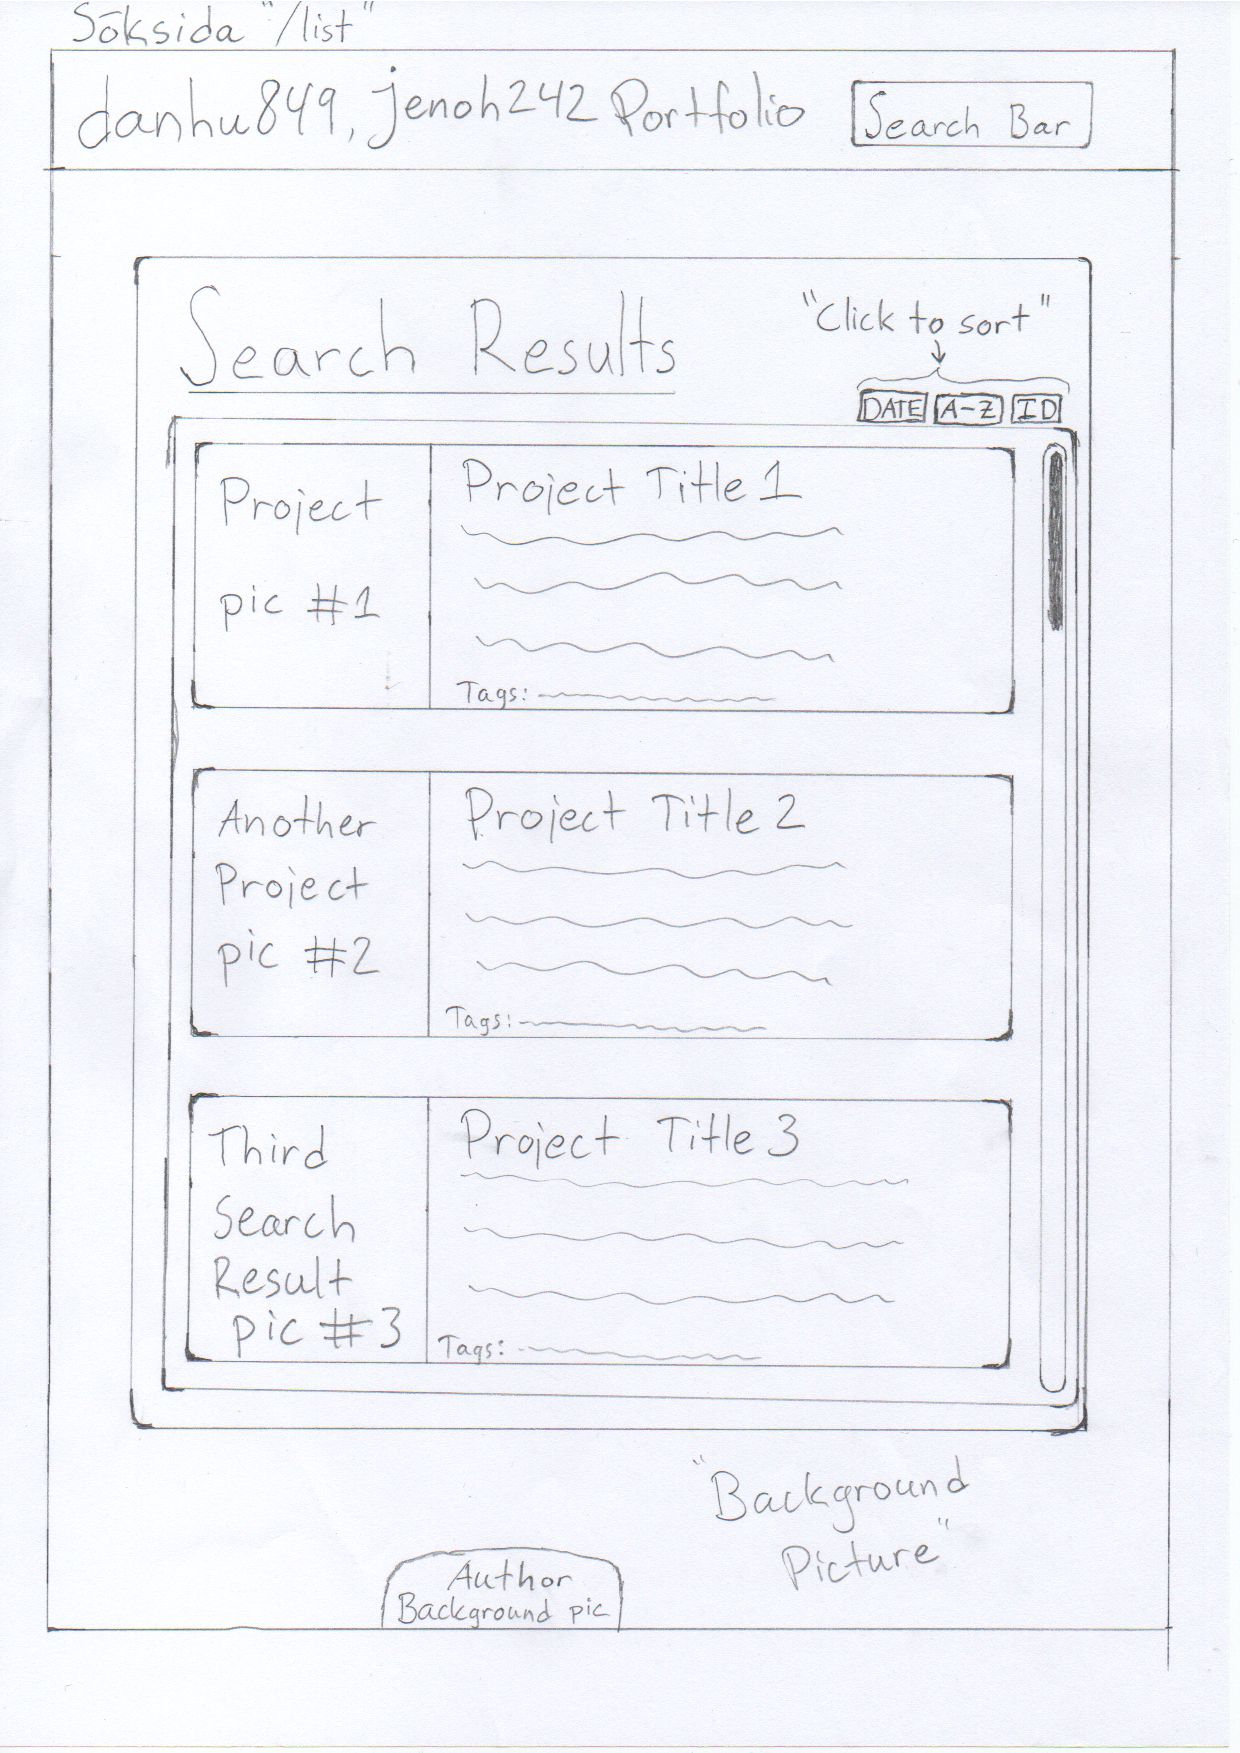 Söksida "/list"
danhu849, jenoh242 Portfolio
Search Bar
Search Results
"Click to sort"
DATE A-Z ID
Project
pic #1
Project Title 1
Tags:
Another
Project
pic #2
Project Title 2
Tags:
Third
Search
Result
pic #3
Project Title 3
Tags:
"Background
Picture"
Author
Background pic